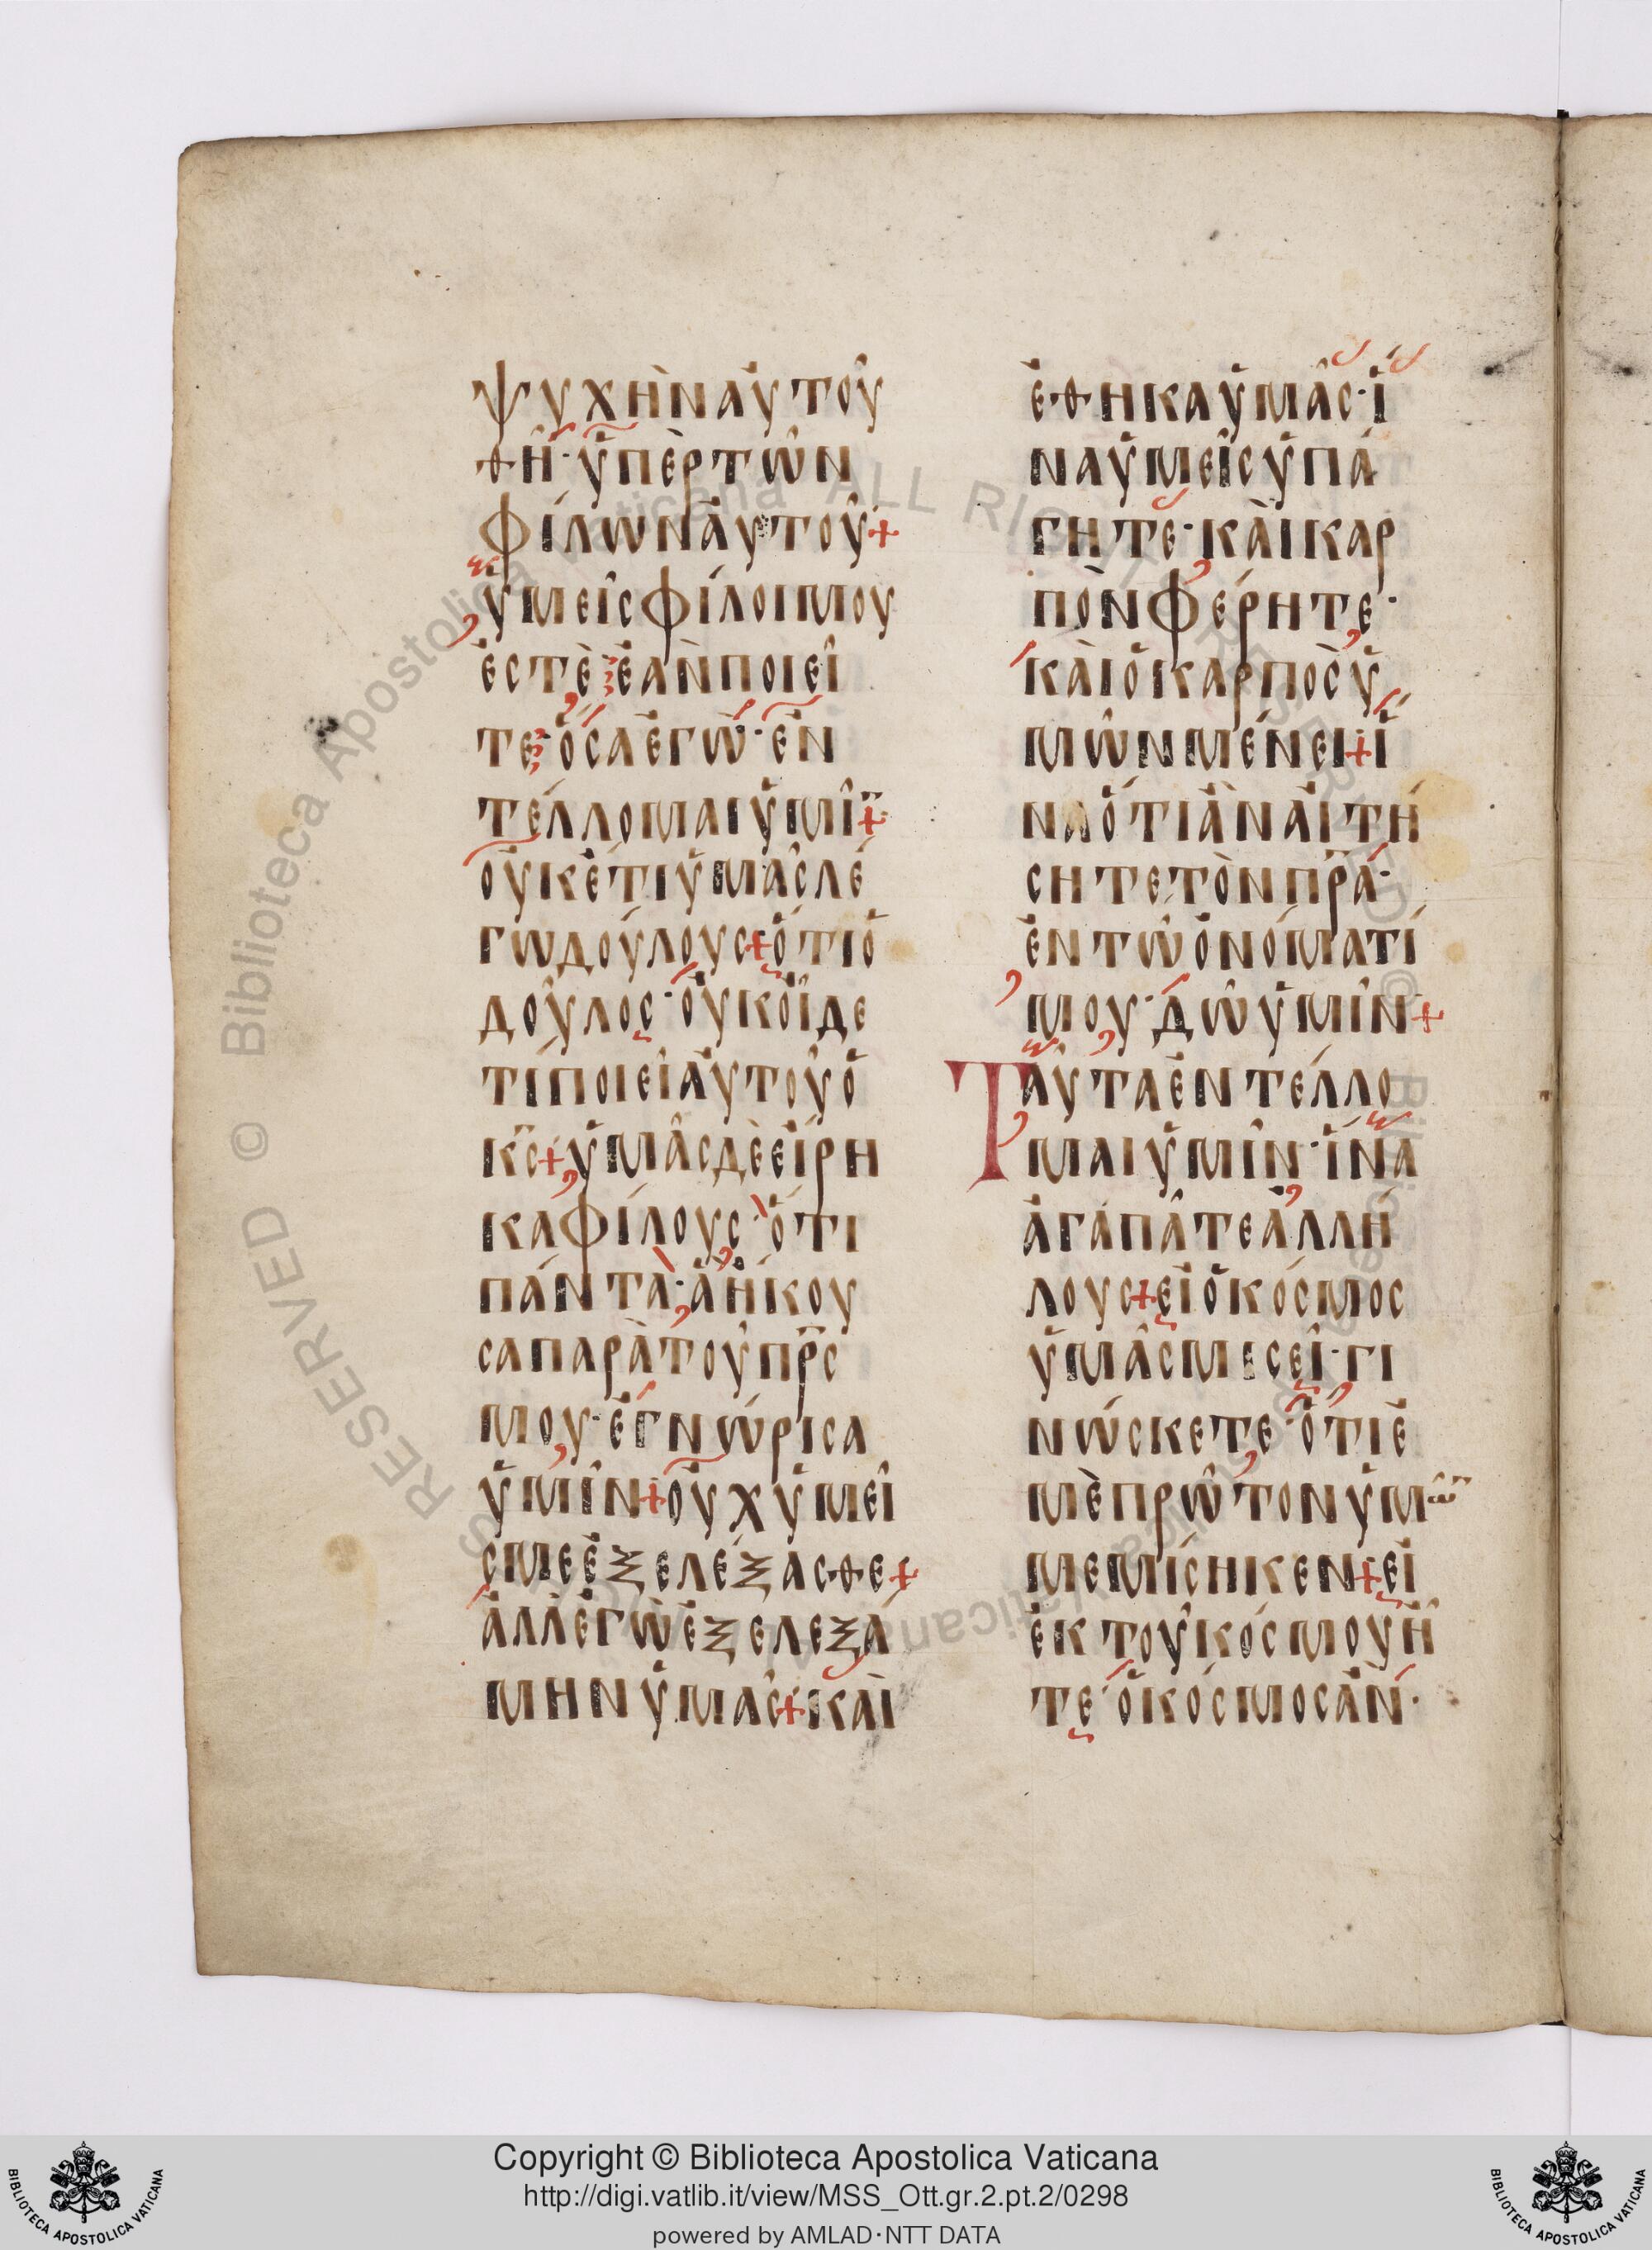 ψυχὴν αὐτοῦ
θῇ· ὑπὲρ τῶν
φίλων αὐτοῦ+
ὑμεῖς φίλοι μου
ἐστὲ· ἐὰν ποιεῖ
τε· ὅσα ἐγὼ· ἐν
τέλλομαι ὑμῖ̅+
οὐκέτι ὑμᾶς λέ
γω δούλους+ὅτι ὁ
δοῦλος· οὐκ οἶδε
τί ποιεῖ αὐτοῦ ὁ
κ̅ς̅+ὑμᾶς δὲ εἴρη
κα φίλους· ὅτι
πάντα· ἃ ἤκου
σα παρὰ τοῦ π̅ρ̅ς̅
μου· ἐγνώρισα
ὑμῖν+οὐχ ὑμεῖ
ς με ἐξελέξασθε+
ἀλλ' ἐγὼ ἐξελεξά
μην ὑμᾶς+καὶ
ἔθηκα ὑμᾶς· ἵ
να ὑμεῖς ὑπά
γητε· καὶ καρ
πὸν φέρητε·
καὶ ὁ καρπὸς ὑ
μῶν μένει+ἵ
να ὅτι ἂν αἰτή
σητε τὸν π̅ρ̅α̅·
ἐν τῶ ὀνόματί
μου· δῶ ὑμῖν+
Ταῦτα ἐντέλλο
μαι ὑμῖν· ἵνα
ἀγαπᾶτε ἀλλή
λους+εἰ ὁ κόσμος
ὑμᾶς μεσεῖ· γι
νώσκετε· ὅτι ἐ
μὲ πρῶτον ὑμῶ̅
μεμίσηκεν+εἰ
ἐκ τοῦ κόσμου ἦ
τε· ὁ κόσμος ἂν·
Copyright © Biblioteca Apostolica Vaticana
http://digi.vatlib.it/view/MSS_Ott.gr.2.pt.2/0298
powered by AMLAD·NTT DATA